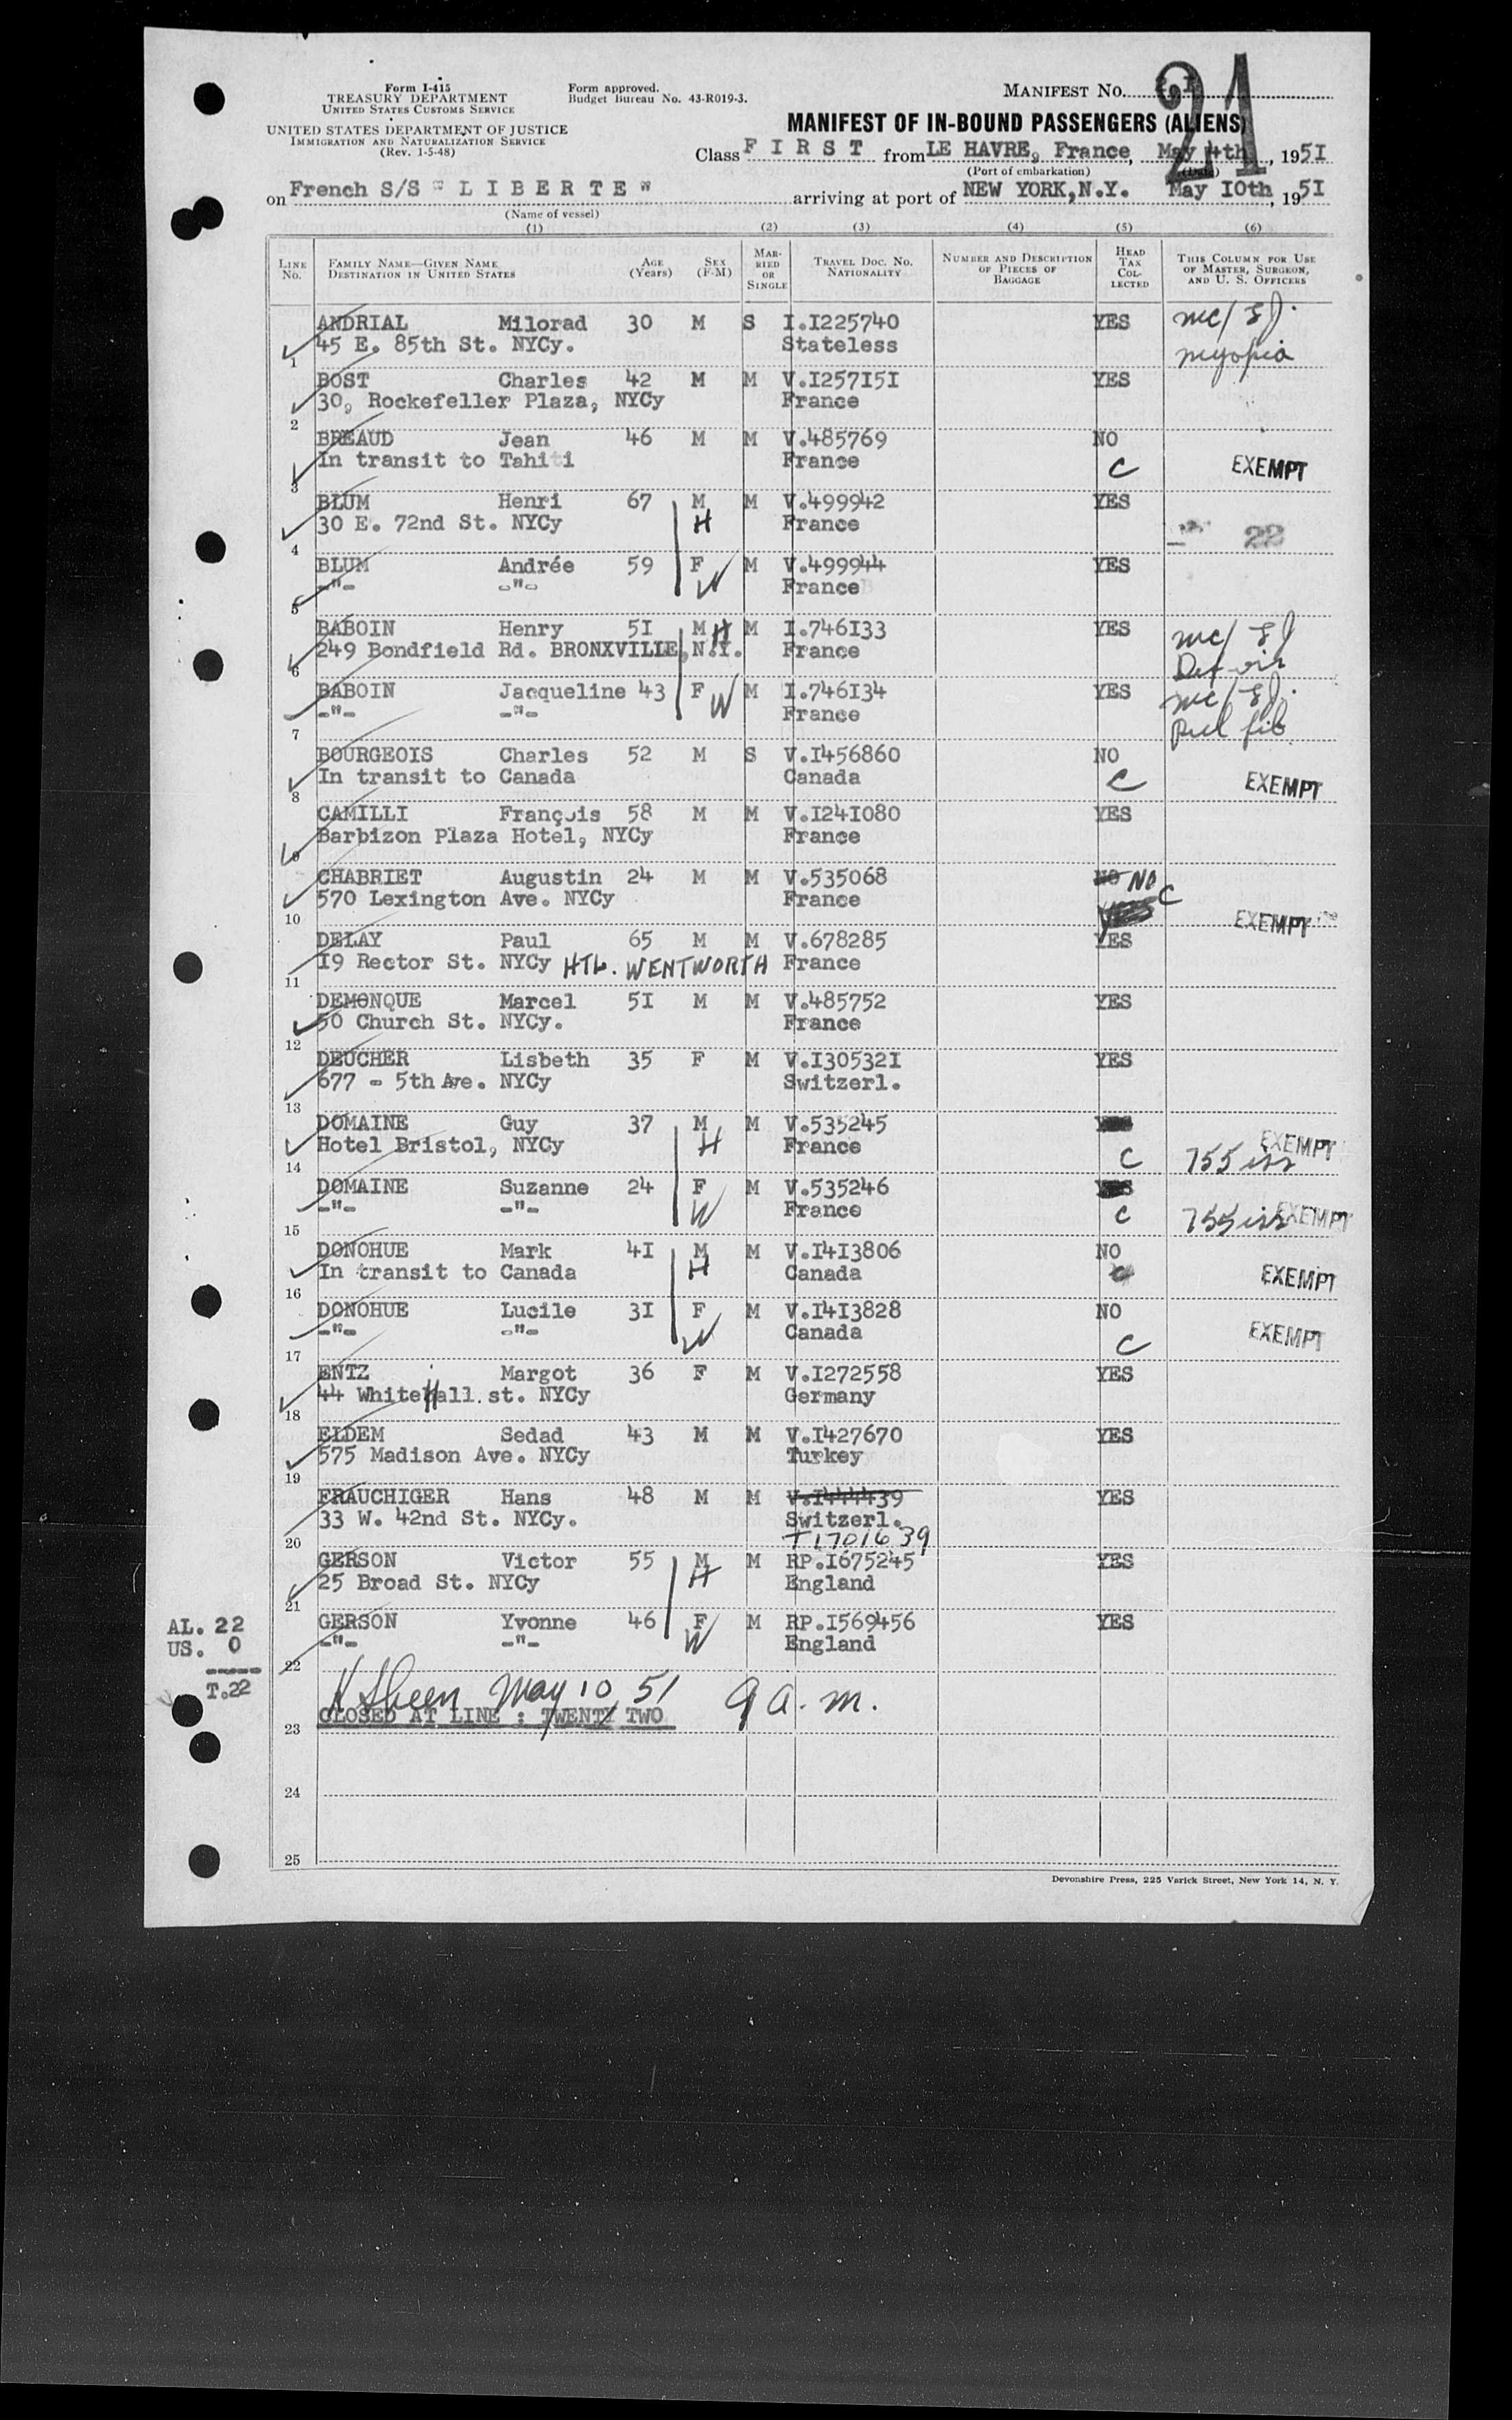 Form I-415
TREASURY DEPARTMENT
UNITED STATES CUSTOMS SERVICE
UNITED STATES DEPARTMENT OF JUSTICE
IMMIGRATION AND NATURALIZATION SERVICE
(Rev. 1-5-48)
Form approved.
Budget Bureau No. 43-R019-3.
MANIFEST No.
21
MANIFEST OF IN-BOUND PASSENGERS (ALIENS)
Class F I R S T from LE HAVRE, France, May 4th, 1951
(Port of embarkation) (Date)
on French S/S " L I B E R T E " arriving at port of NEW YORK, N.Y. May 10th, 1951
(Name of vessel)
(1) (2) (3) (4) (5) (6)
LINE No. FAMILY NAME—GIVEN NAME DESTINATION IN UNITED STATES AGE (Years) SEX (F-M) MARRIED OR SINGLE TRAVEL DOC. NO. NATIONALITY NUMBER AND DESCRIPTION OF PIECES OF BAGGAGE HEAD TAX COLLECTED THIS COLUMN FOR USE OF MASTER, SURGEON, AND U. S. OFFICERS
ANDRIAL Milorad 30 M S I.I225740 YES
1 45 E. 85th St. NYCy. Stateless myopia
BOST Charles 42 M M V.I257I5I YES
2 30, Rockefeller Plaza, NYCy France
BREAUD Jean 46 M M V.485769 NO
3 In transit to Tahiti France C EXEMPT
BLUM Henri 67 M M V.499942 YES
4 30 E. 72nd St. NYCy H France 22
BLUM Andrée 59 F M V.499944 YES
5 -"- -"- W France
BABOIN Henry 5I M H M I.746I33 YES
6 249 Bondfield Rd. BRONXVILLE, N.Y. France
BABOIN Jacqueline 43 F W M I.746I34 YES
7 -"- -"- France
BOURGEOIS Charles 52 M S V.I456860 NO
8 In transit to Canada Canada C EXEMPT
CAMILLI François 58 M M V.I24I080 YES
9 Barbizon Plaza Hotel, NYCy France
CHABRIET Augustin 24 M M V.535068 NO NO
10 570 Lexington Ave. NYCy France YES C EXEMPT
DELAY Paul 65 M M V.678285 YES
11 I9 Rector St. NYCy HTL. WENTWORTH France
DEMONQUE Marcel 5I M M V.485752 YES
12 50 Church St. NYCy. France
DEUCHER Lisbeth 35 F M V.I30532I YES
13 677 - 5th Ave. NYCy Switzerl.
DOMAINE Guy 37 M M V.535245
14 Hotel Bristol, NYCy H France C 755 iss EXEMPT
DOMAINE Suzanne 24 F M V.535246
15 -"- -"- W France C 755 iss EXEMPT
DONOHUE Mark 4I M M V.I4I3806 NO
16 In transit to Canada H Canada C EXEMPT
DONOHUE Lucile 3I F M V.I4I3828 NO
17 -"- -"- W Canada C EXEMPT
ENTZ Margot 36 F M V.I272558 YES
18 44 WhiteHall.st. NYCy Germany
ELDEM Sedad 43 M M V.I427670 YES
19 575 Madison Ave. NYCy Turkey
FRAUCHIGER Hans 48 M M V.I444439 YES
20 33 W. 42nd St. NYCy. Switzerl.
T1701639
GERSON Victor 55 M M RP.I675245 YES
21 25 Broad St. NYCy H England
GERSON Yvonne 46 F M RP.I569456 YES
22 -"- -"- W England
AL. 22
US. 0
T.22
K Sheen May 10, 51 9 a.m.
23 CLOSED AT LINE : TWENTY TWO
24
25
Devonshire Press, 225 Varick Street, New York 14, N. Y.